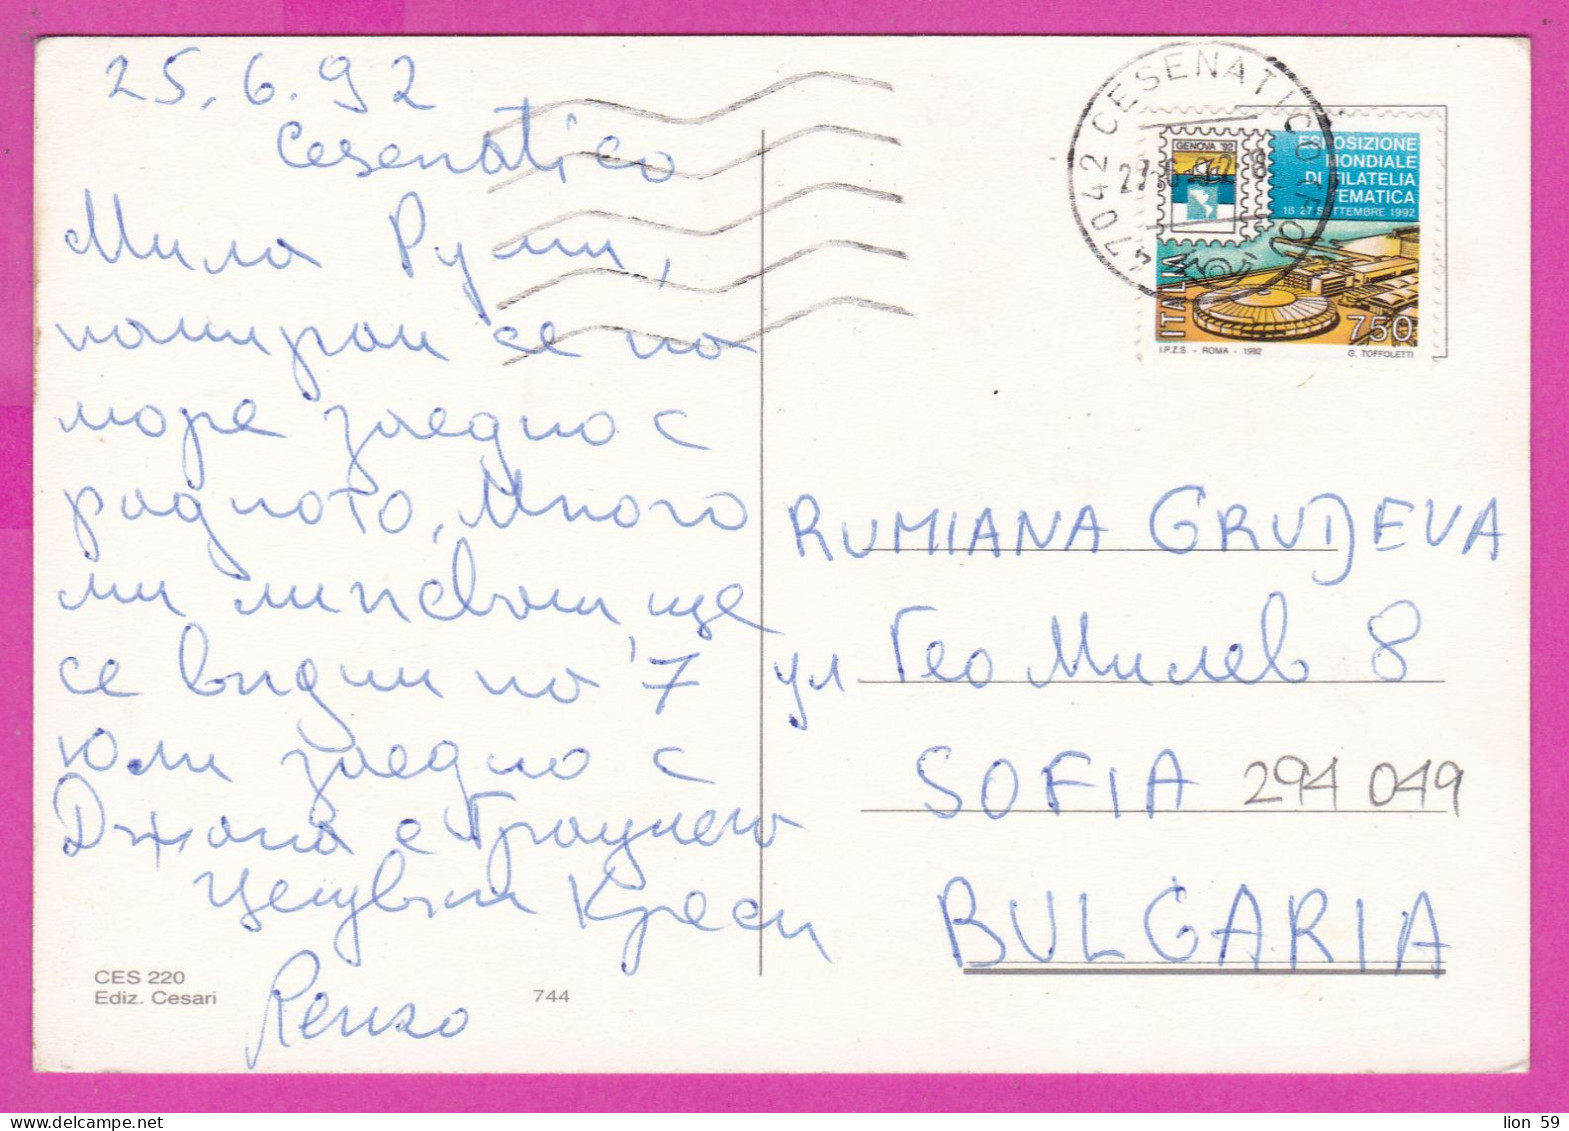 25.6.92
Cesenatico
Мила Руми,
намирам се на
море заедно с
радного. Много
ми липсваш, ще
се видим на 7
юли заедно с
Джана е
Целувки Креси
Renzo
CES 220
Ediz. Cesari
744
47042 CESENATICO (FO)
27-6-92 8
GENOVA '92
ESPOSIZIONE
MONDIALE
DI FILATELIA
TEMATICA
18-27 SETTEMBRE 1992
ITALIA
750
I.P.Z.S. - ROMA - 1992
G. TOFFOLETTI
RUMIANA GRUDEVA
ул Гео Милев 8
SOFIA 294 049
BULGARIA
www.delcampe.net
lion 59